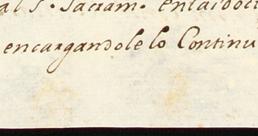 al S. Sacram. en las doct
encargandole lo Continu